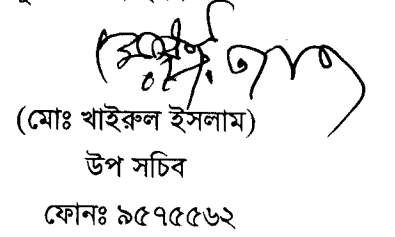 (মোঃ খাইরুল ইসলাম)
উপ সচিব
ফোনঃ ৯৫৭৫৫৬২